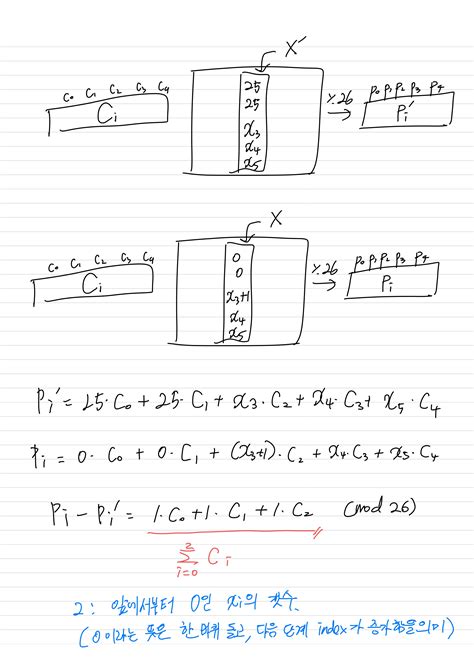 X'
C₀ C₁ C₂ C₃ C₄
Cᵢ
25
25
x₃
x₄
x₅
%26
P₀ P₁ P₂ P₃ P₄
Pᵢ'
X
C₀ C₁ C₂ C₃ C₄
Cᵢ
0
0
x₃+1
x₄
x₅
%26
P₀ P₁ P₂ P₃ P₄
Pᵢ
Pᵢ' = 25·C₀ + 25·C₁ + x₃·C₂ + x₄·C₃ + x₅·C₄
Pᵢ = 0·C₀ + 0·C₁ + (x₃+1)·C₂ + x₄·C₃ + x₅·C₄
Pᵢ - Pᵢ' = 1·C₀ + 1·C₁ + 1·C₂ (mod 26)
2
Σ Cᵢ
i=0
2 : 앞에서부터 0인 xᵢ의 갯수.
(0이라는 뜻은 한 바퀴 돌고, 다음 단계 index가 증가함을 의미)